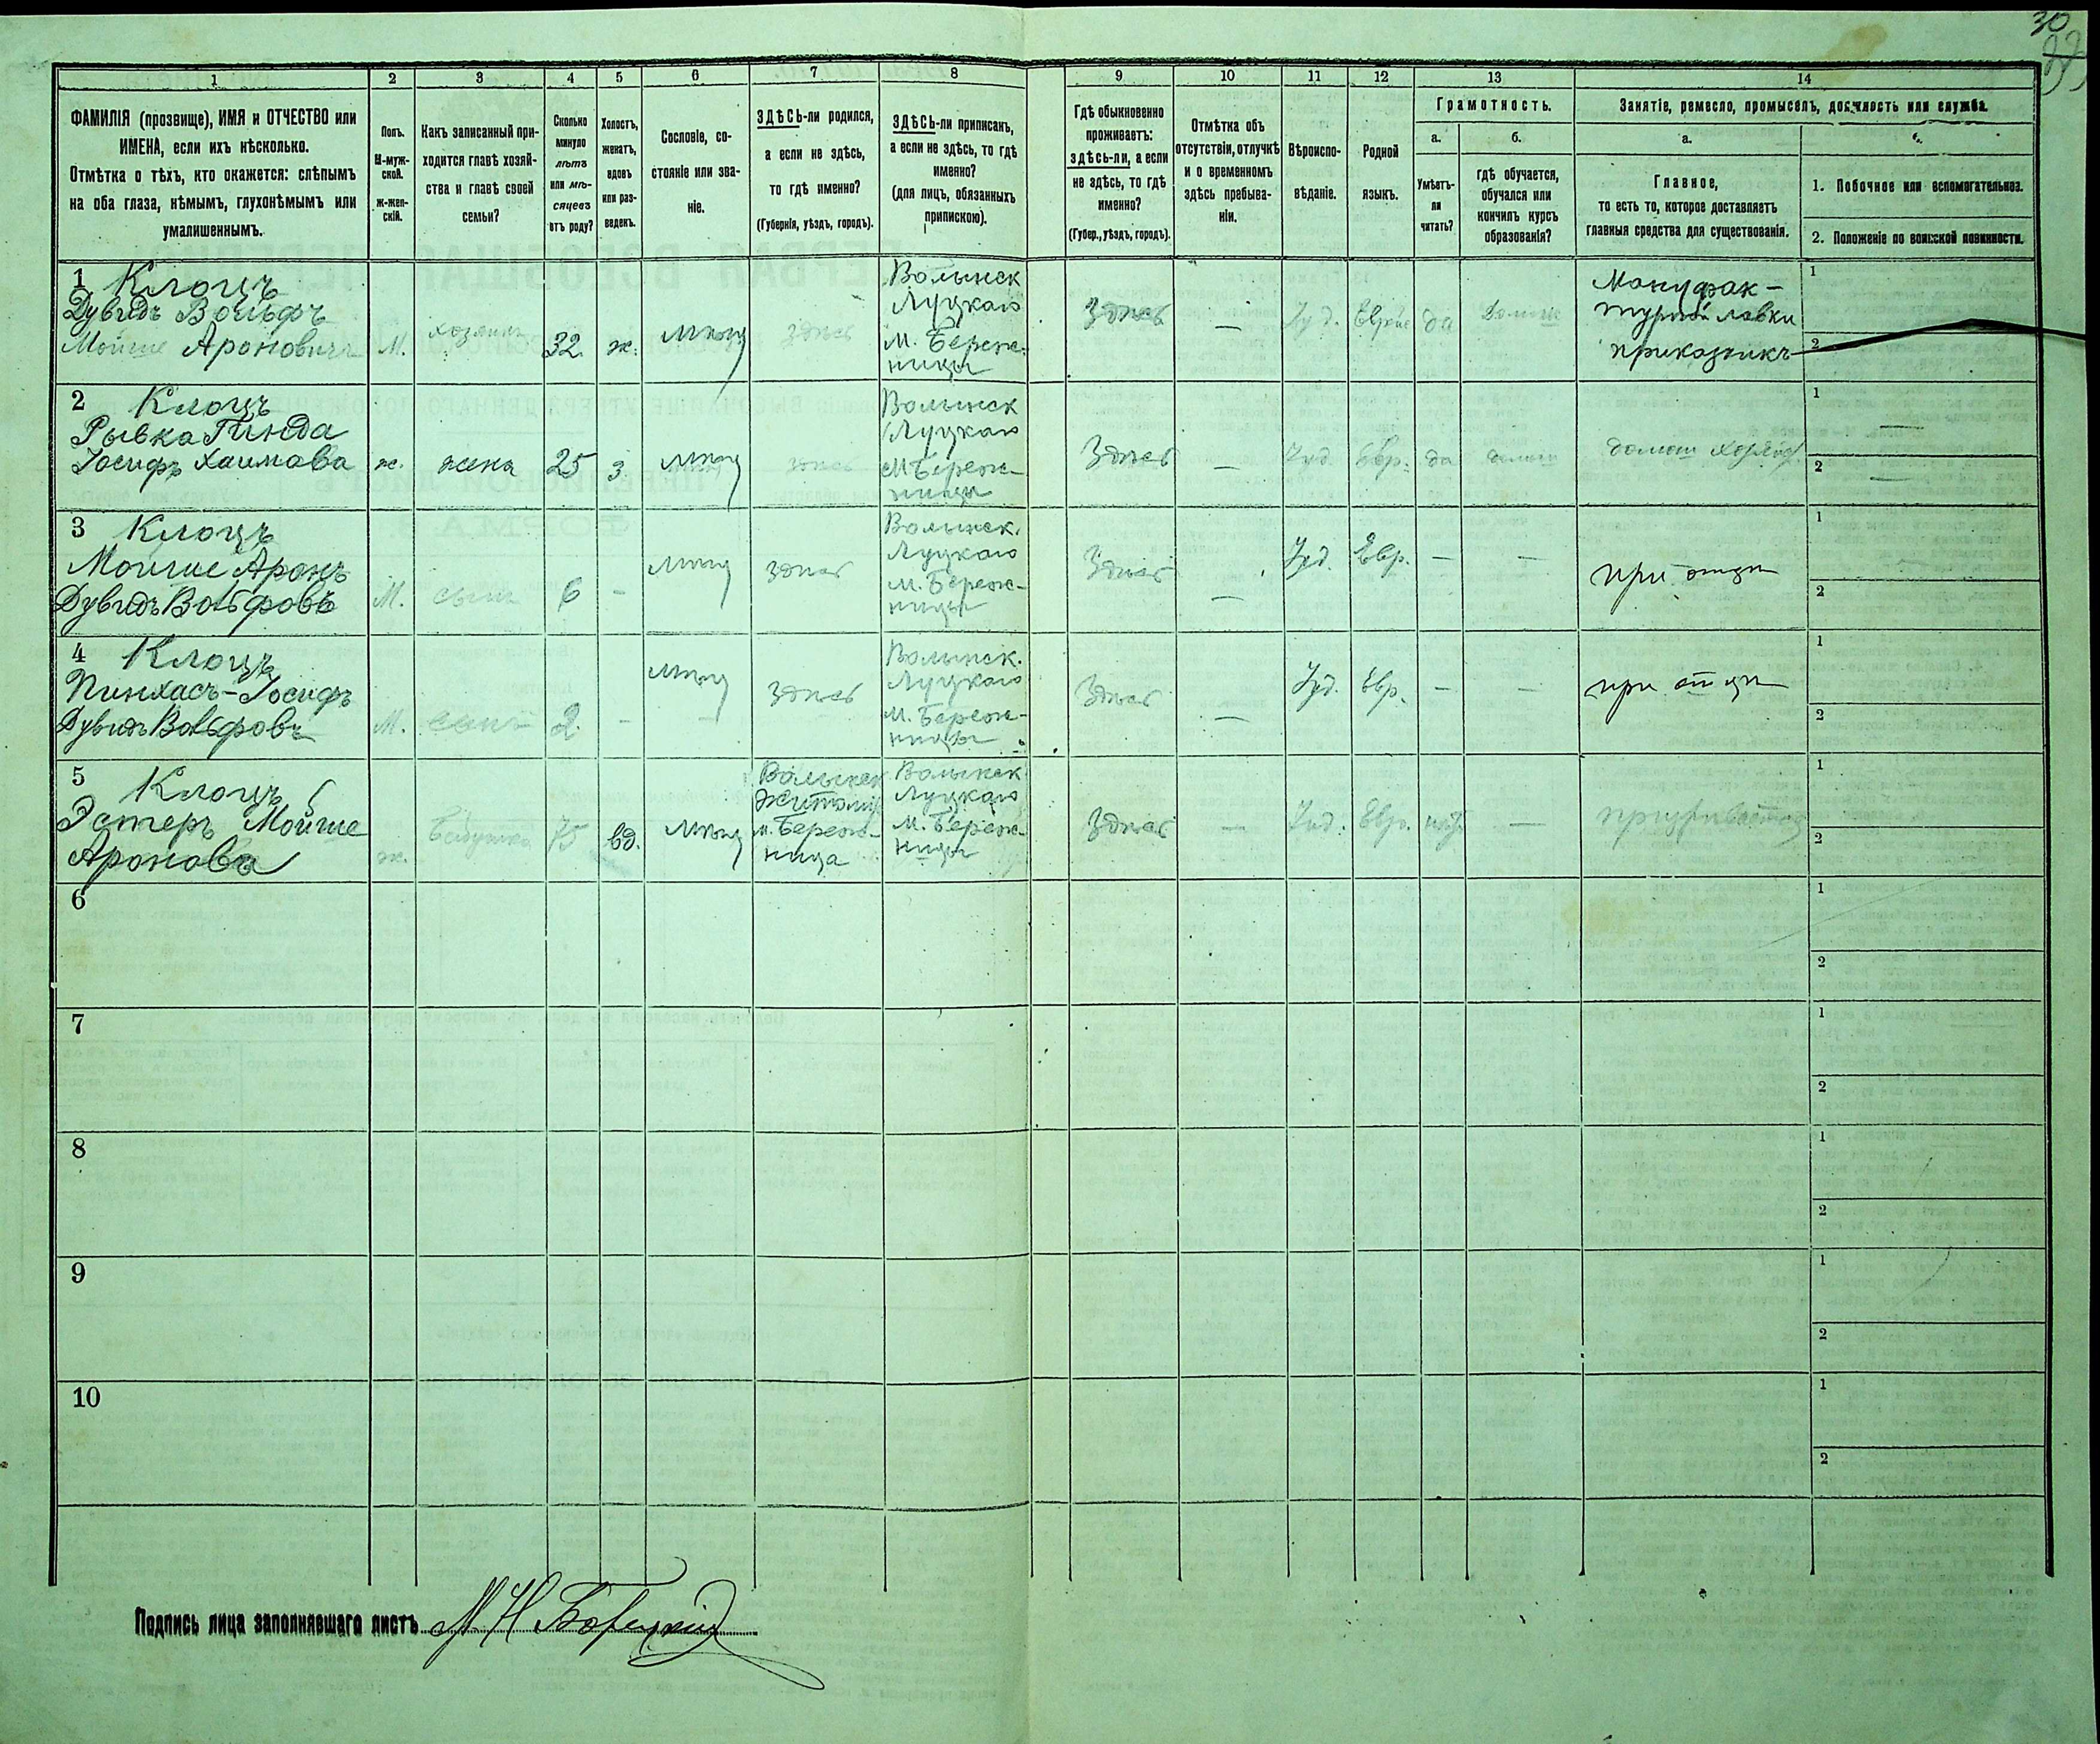 30
1 2 3 4 5 6 7 8 9 10 11 12 13 14
ФАМИЛІЯ (прозвище), ИМЯ и ОТЧЕСТВО или
ИМЕНА, если ихъ нѣсколько.
Отмѣтка о тѣхъ, кто окажется: слѣпымъ
на оба глаза, нѣмымъ, глухонѣмымъ или
умалишеннымъ.
Полъ.
М-муж-
ской.
ж-жен-
скій.
Какъ записанный при-
ходится главѣ хозяй-
ства и главѣ своей
семьи?
Сколько
минуло
лѣтъ
или мѣ-
сяцевъ
отъ роду?
Холостъ,
женатъ,
вдовъ
или раз-
веденъ.
Сословіе, со-
стояніе или зва-
ніе.
ЗДѢСЬ-ли родился,
а если не здѣсь,
то гдѣ именно?
(Губернія, уѣздъ, городъ).
ЗДѢСЬ-ли приписанъ,
а если не здѣсь, то гдѣ
именно?
(для лицъ, обязанныхъ
припискою).
Гдѣ обыкновенно
проживаетъ:
здѣсь-ли, а если
не здѣсь, то гдѣ
именно?
(Губер., уѣздъ, городъ).
Отмѣтка объ
отсутствіи, отлучкѣ
и о временномъ
здѣсь пребыва-
ніи.
Вѣроиспо-
вѣданіе.
Родной
языкъ.
Грамотность.
а.
Умѣетъ-
ли
читать?
б.
гдѣ обучается,
обучался или
кончилъ курсъ
образованія?
Занятіе, ремесло, промыселъ, должность или служба.
а.
Главное,
то есть то, которое доставляетъ
главныя средства для существованія.
1. Побочное или вспомогательное.
2. Положеніе по воинской повинности.
1 Клоцъ
Дувидъ Вольфъ
Мойше Ароновичъ
М.
хозяинъ
32.
ж.
мѣщ
здѣсь
Волынск
Луцкаго
м. Береж-
ницы
Здѣсь
—
Іуд.
Еврейс
да
домаш
Мануфак-
турной лавки
приказчикъ
1
2
2 Клоцъ
Рывка Гинда
Іосифъ Хаимова
ж.
жена
25
з.
мѣщ
здѣсь
Волынск
Луцкаго
м Береж-
ницы
Здѣсь
—
Іуд.
Евр.
да
домаш
домаш хозяйс
1
—
2
—
3 Клоцъ
Мойше Аронъ
Дувидъ Вольфовъ
М.
сынъ
6
-
мѣщ
здѣсь
Волынск.
Луцкаго
м. Береж-
ницы
Здѣсь
—
Іуд.
Евр.
—
—
при отцѣ
1
2
4 Клоцъ
Пинхасъ-Іосифъ
Дувидъ Вольфовъ
М.
сынъ
2.
-
мѣщ
здѣсь
Волынск.
Луцкаго
м. Береж-
ницы
Здѣсь
—
Іуд.
Евр.
—
—
при отцѣ
1
2
5 Клоцъ
Эстеръ Мойше
Аронова
ж.
бабушка
75
вд.
мѣщ
Волынск
Житомир
м. Береж-
ница
Волынск
Луцкаго
м. Береж-
ницы
Здѣсь
—
Іуд.
Евр.
нѣт
—
1
2
6
1
2
7
1
2
8
1
2
9
1
2
10
1
2
Подпись лица заполнявшаго листъ